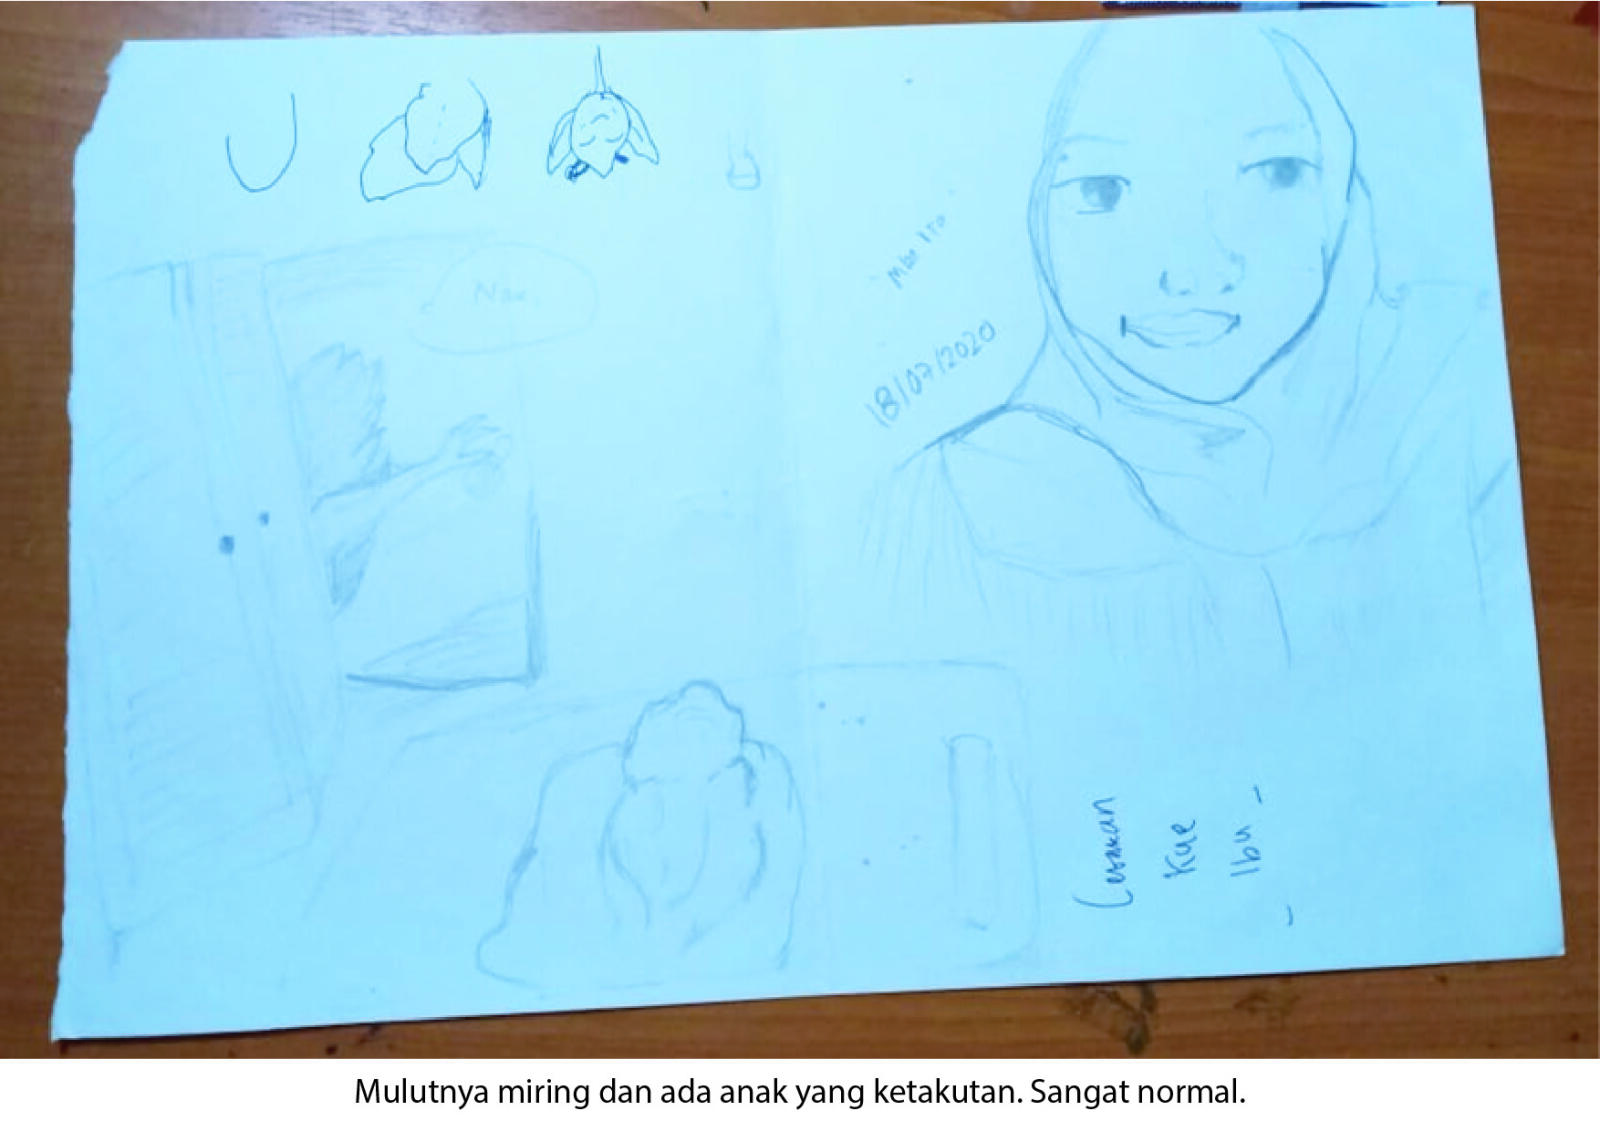 Nak
Mbo Ito
18/07/2020
Kue
Ibu
Mulutnya miring dan ada anak yang ketakutan. Sangat normal.